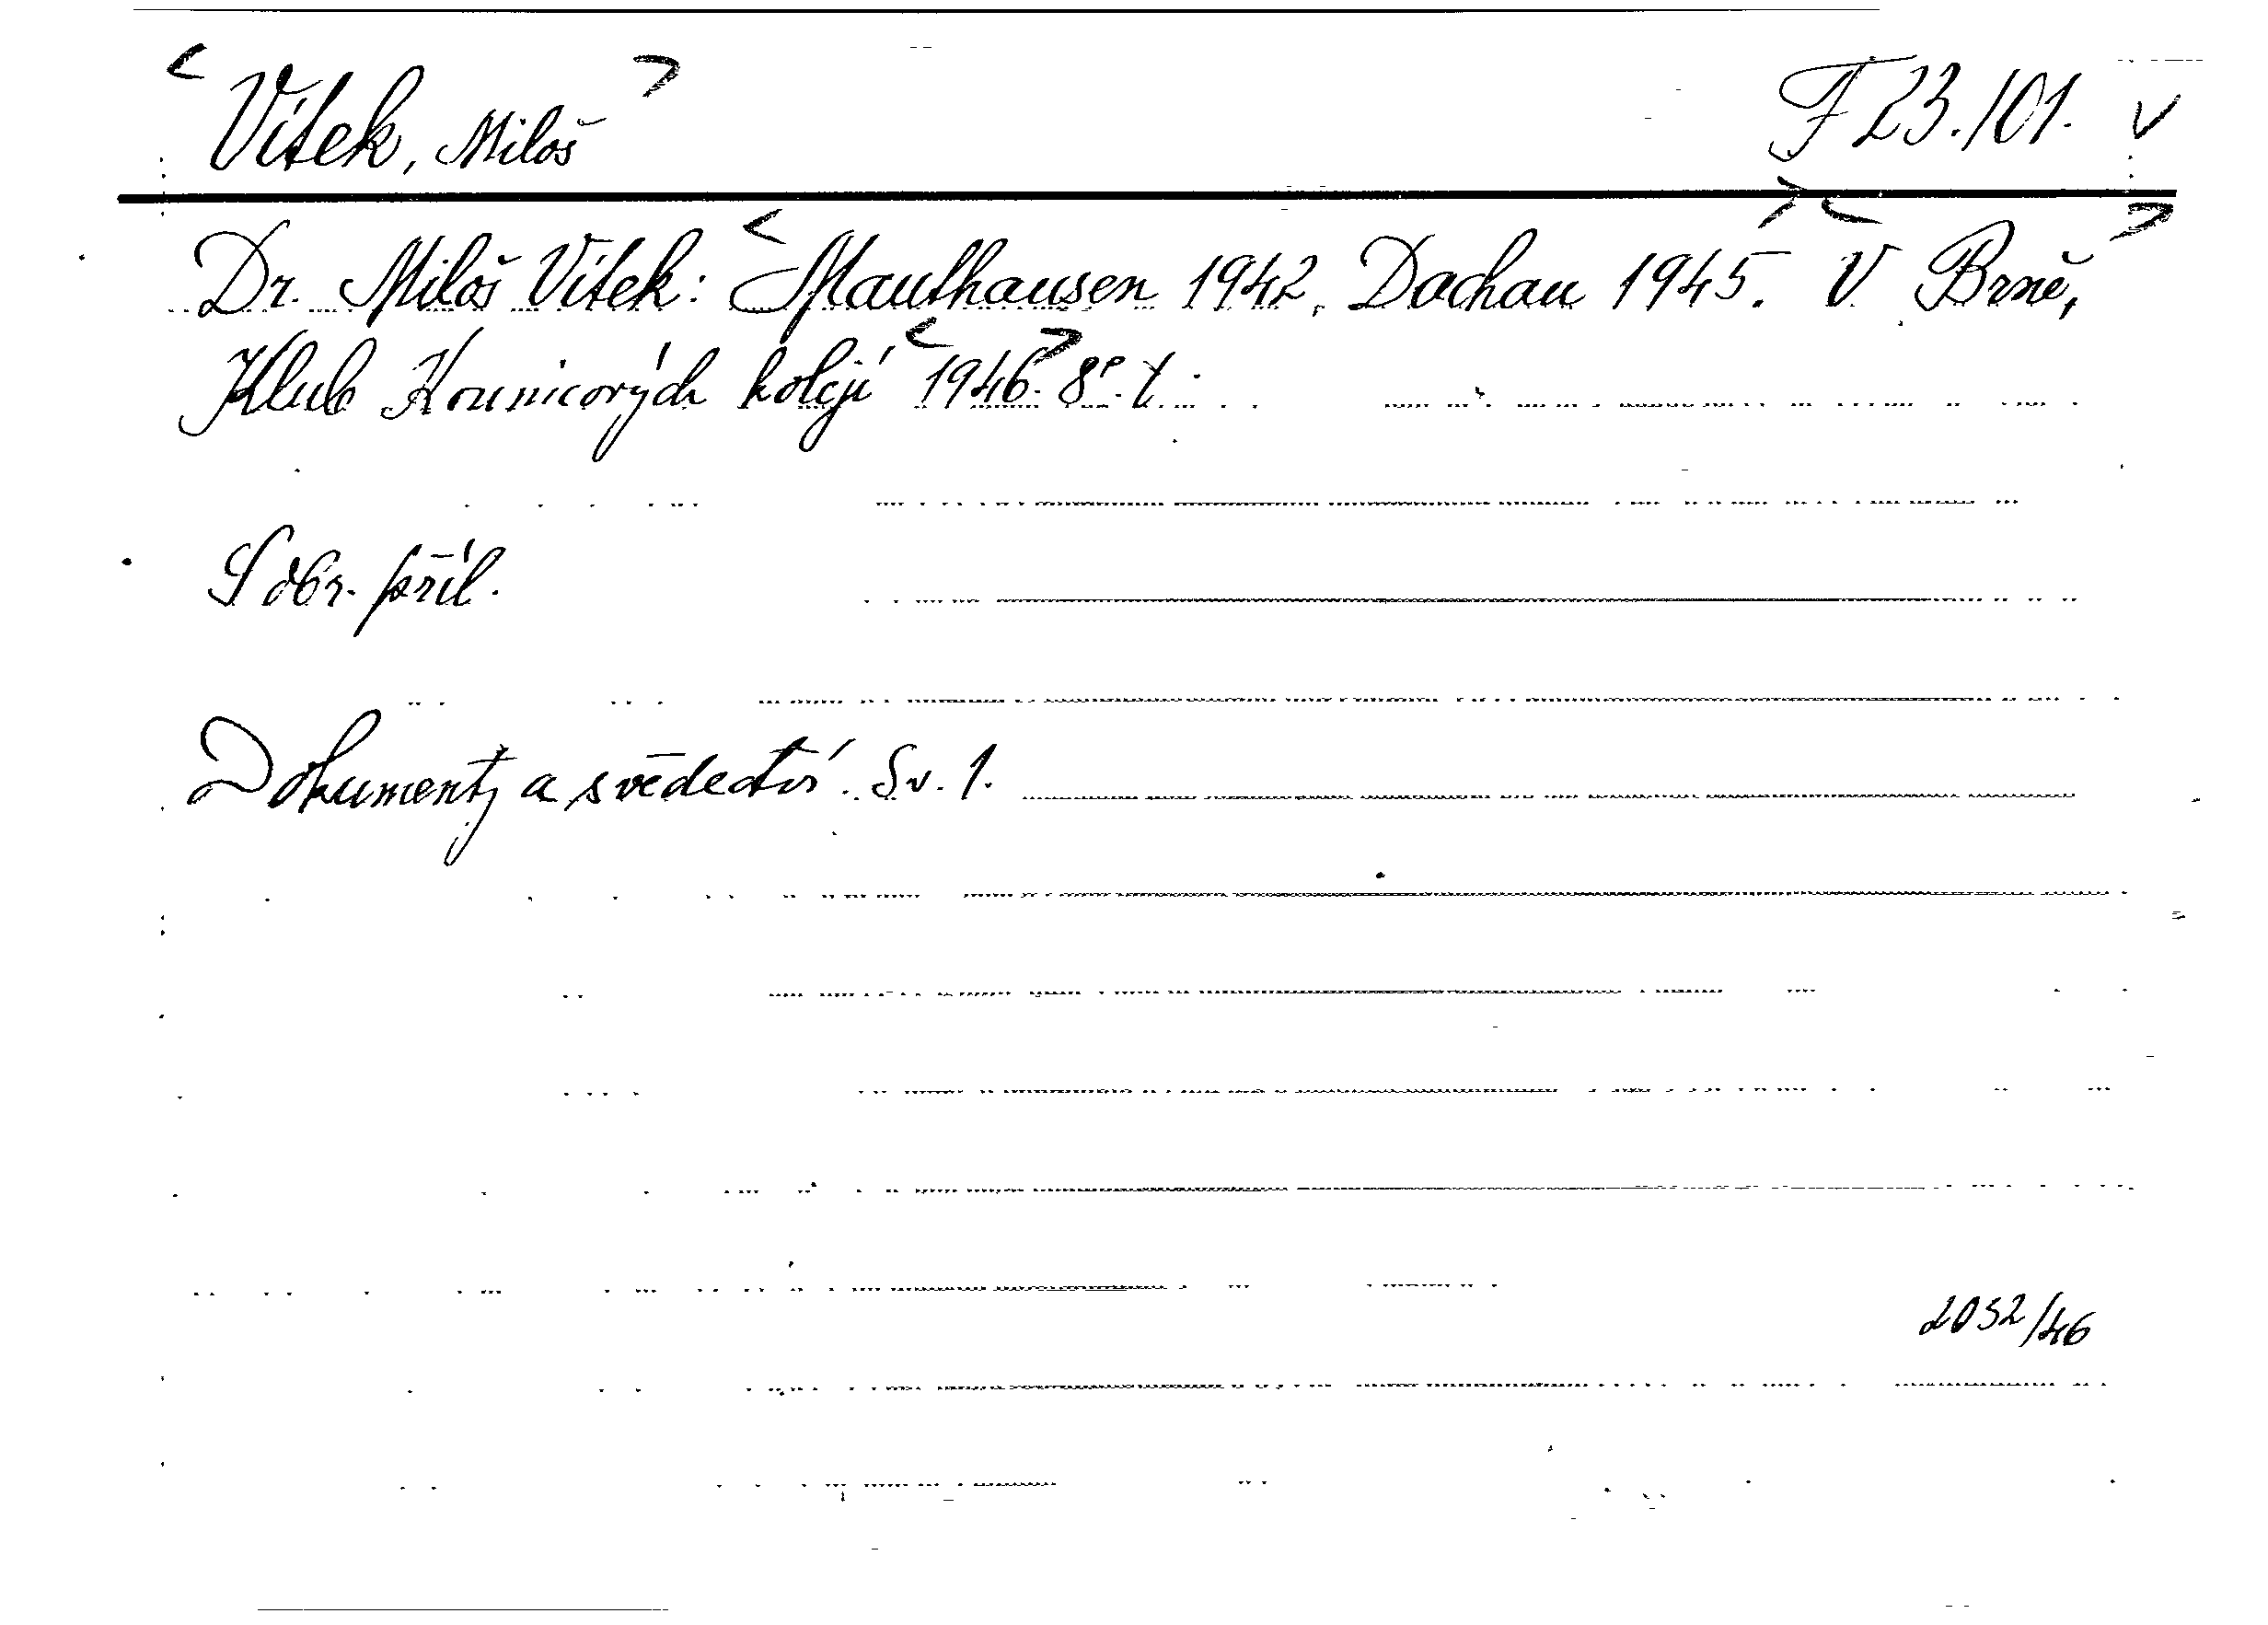 Vítek, Miloš F 23./01. v
Dr. Miloš Vítek: Mauthausen 1942, Dachau 1945. V Brně,
Klub Kounicových kolejí 1946. 8°. t.
S obr. příl.
Dokumenty a svědectví. Sv. 1.
2032/46